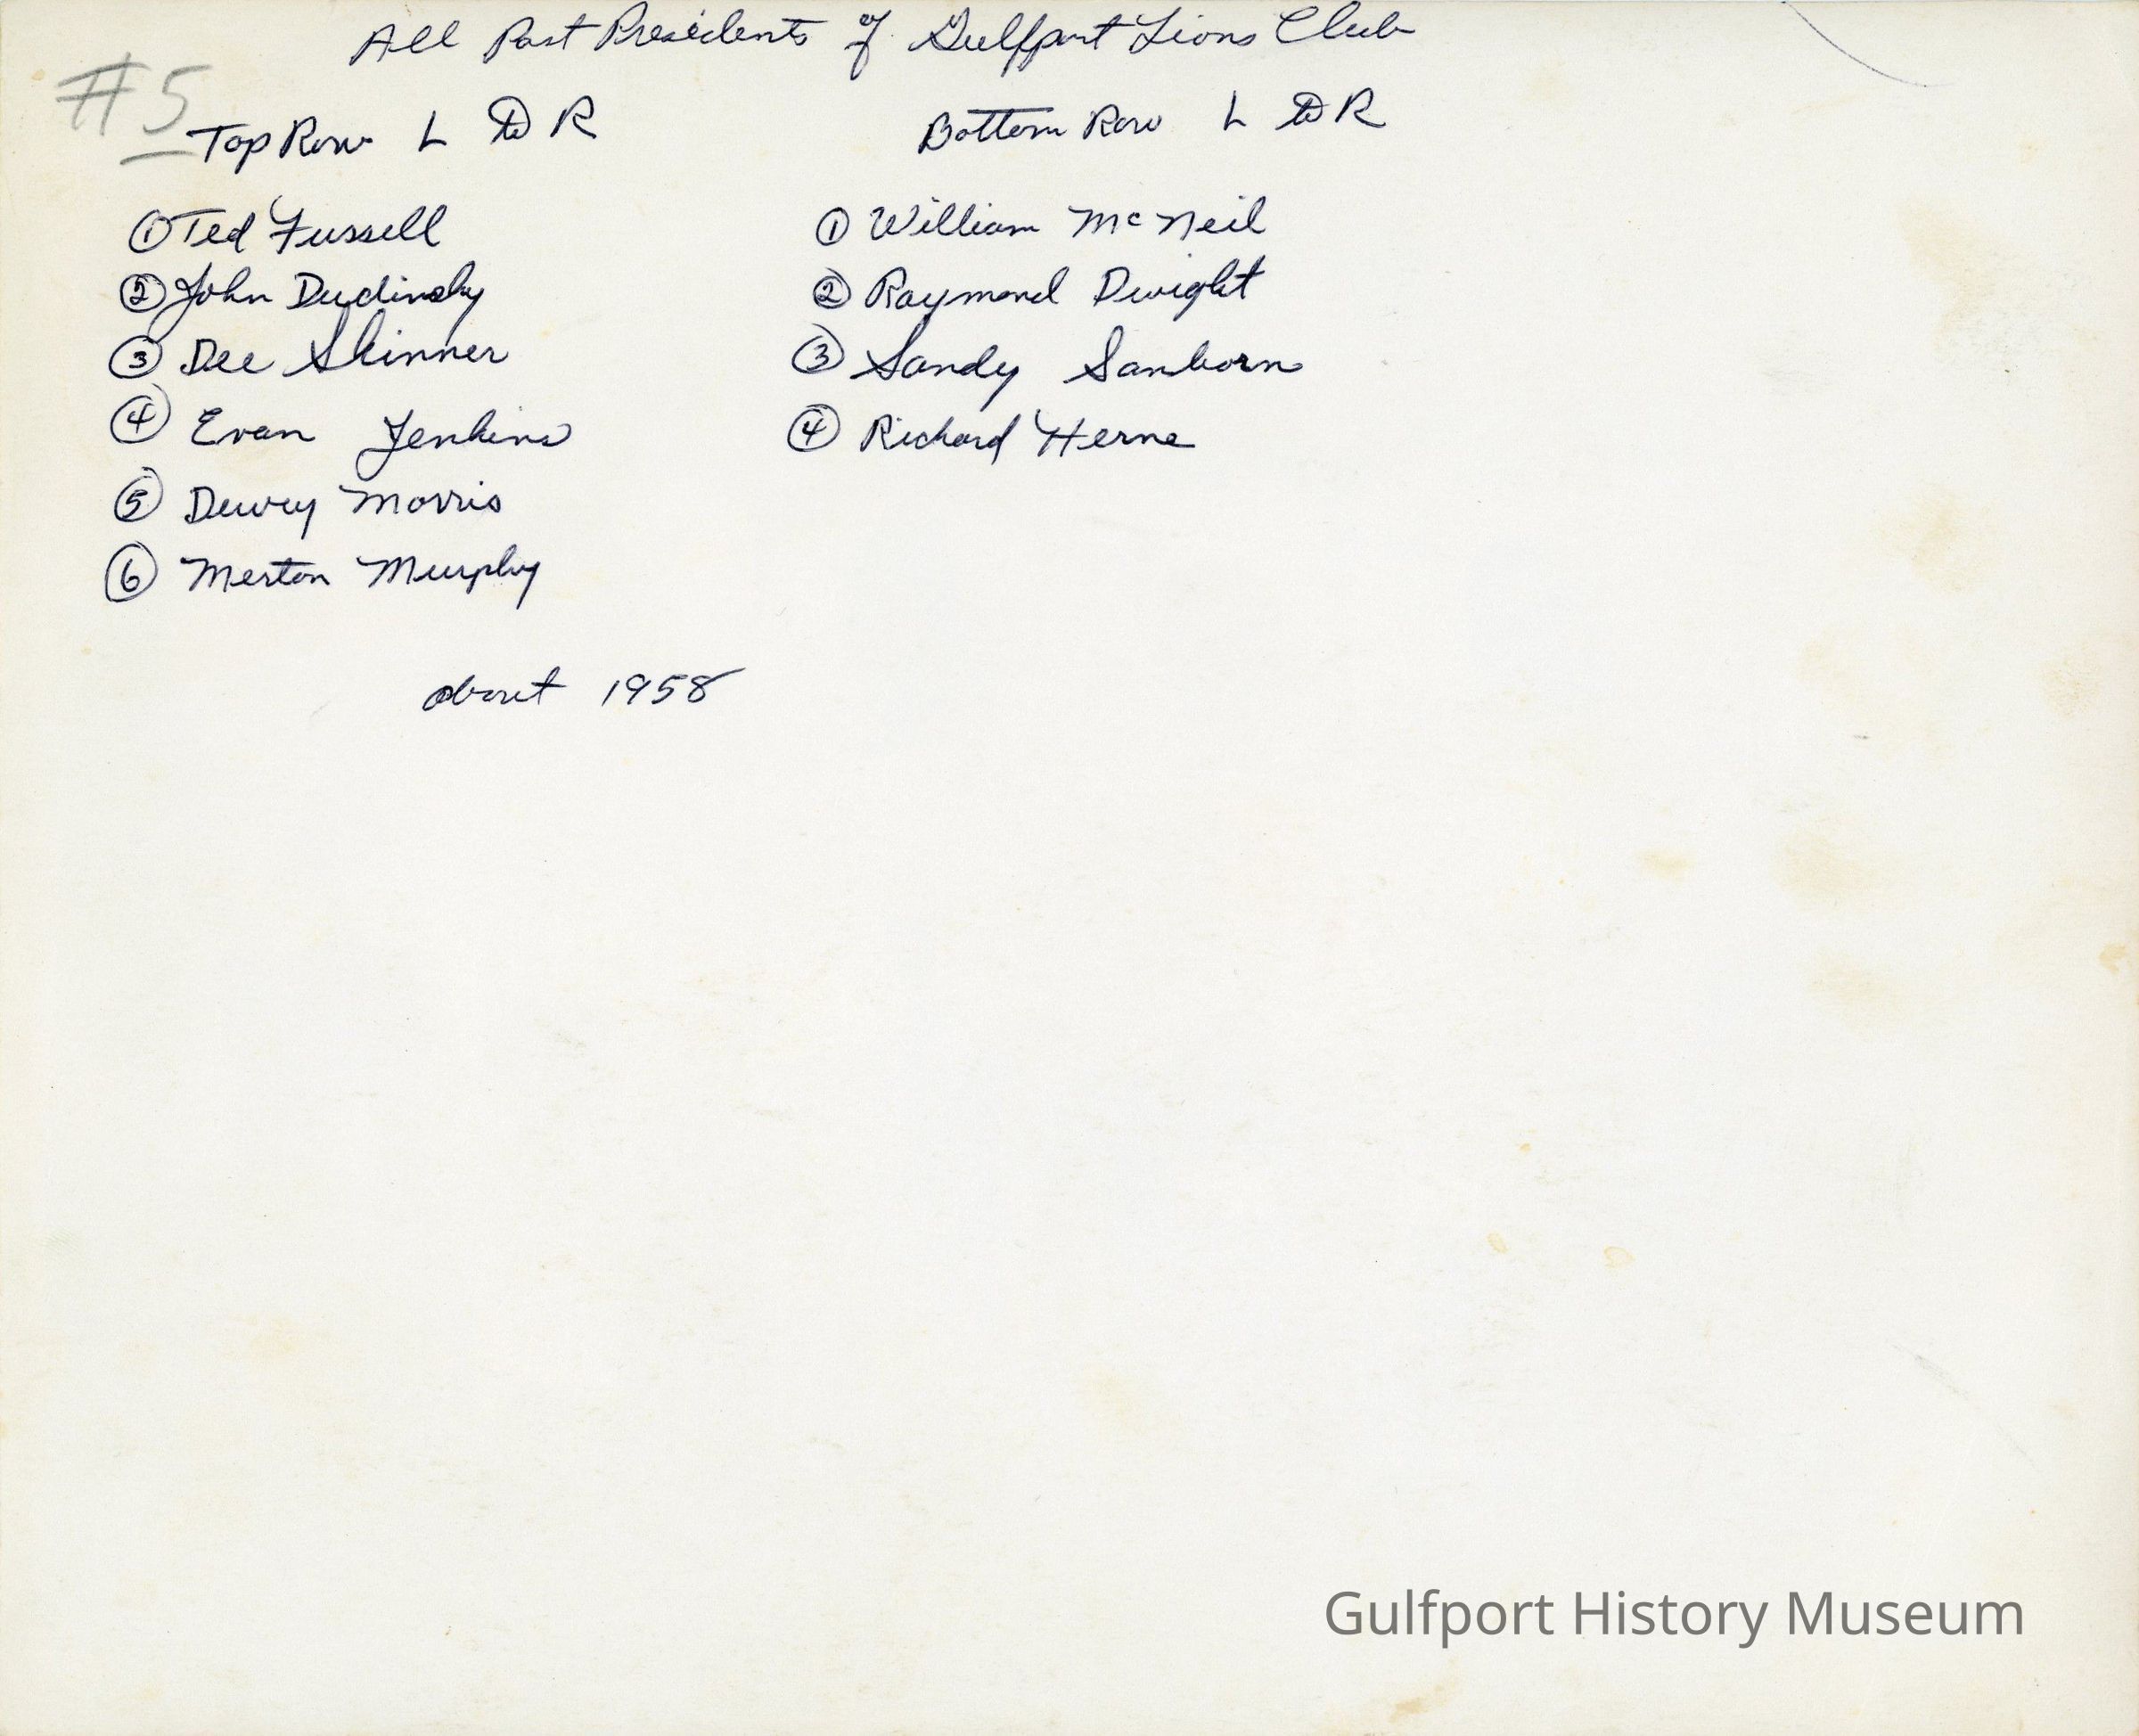 All Past Presidents of Gulfport Lions Club
#5
Top Row L to R
① Ted Fussell
② John Dudinsky
③ Dee Skinner
④ Evan Jenkins
⑤ Dewey Morris
⑥ Merton Murphy
Bottom Row L to R
① William McNeil
② Raymond Dwight
③ Sandy Sanborn
④ Richard Herne
about 1958
Gulfport History Museum